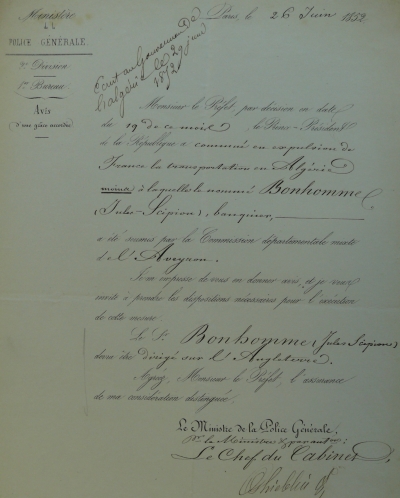 Ministère
de la
POLICE GÉNÉRALE.
Division
1er Bureau
Avis
d'une grâce accordée
Paris, le 26 Juin 1852
Ecrit au Gouverneur de
l'algérie le 29 juin
1852
Monsieur le Préfet, par décision en date
du 19 de ce mois, le Prince-Président
de la République a commué en expulsion de
France la transportation en Algérie
à laquelle le nommé Bonhomme
(Jules-Scipion), banquier,
a été soumis par la Commission départementale mixte
de l'Aveyron.
Je m'empresse de vous en donner avis, et je vous
invite à prendre les dispositions nécessaires pour l'exécution
de cette mesure.
Le Sr. Bonhomme (Jules Scipion)
devra être dirigé sur l'Angleterre.
Agréez, Monsieur le Préfet, l'assurance
de ma considération distinguée.
Le Ministre de la Police Générale,
Pr. le Ministre & par auton:
Le Chef du Cabinet,